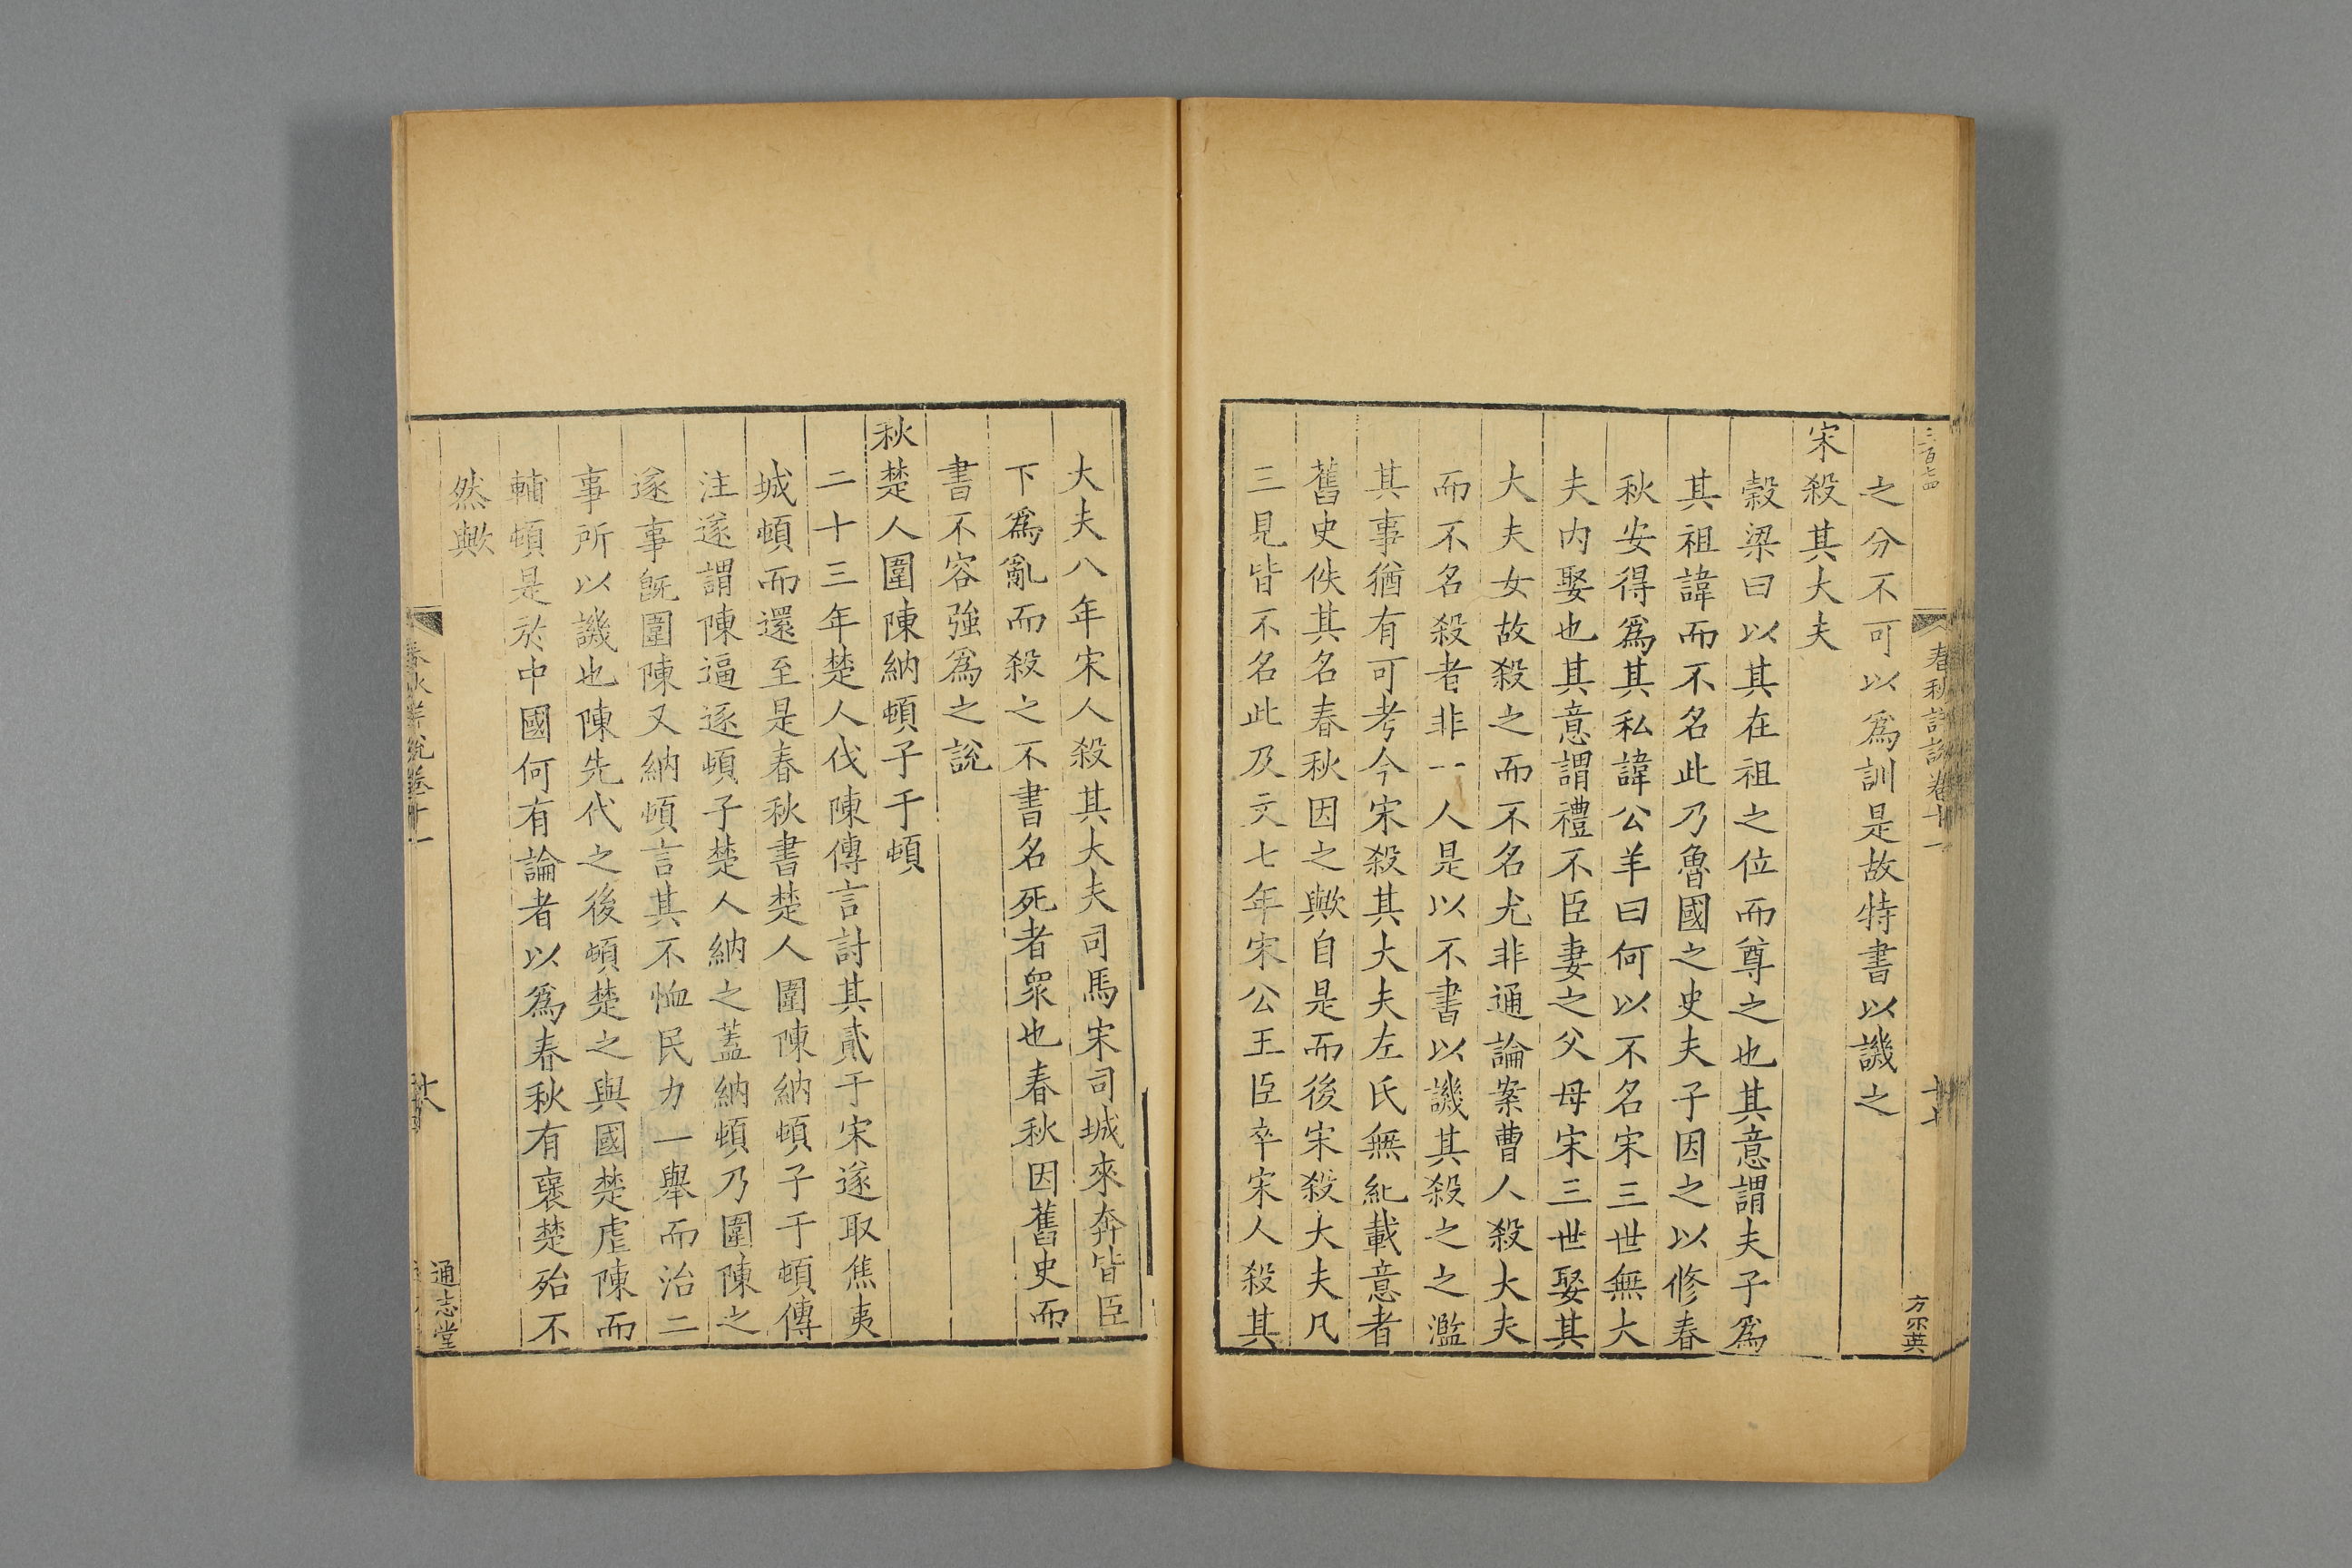 三百七四
春秋詳說卷十一
十七
方尔英
之分不可以爲訓是故特書以譏之
宋殺其大夫
穀梁曰以其在祖之位而尊之也其意謂夫子爲
其祖諱而不名此乃魯國之史夫子因之以修春
秋安得爲其私諱公羊曰何以不名宋三世無大
夫內娶也其意謂禮不臣妻之父母宋三世娶其
大夫女故殺之而不名尤非通論案曹人殺大夫
而不名殺者非一人是以不書以譏其殺之之濫
其事猶有可考今宋殺其大夫左氏無紀載意者
舊史佚其名春秋因之歟自是而後宋殺大夫凡
三見皆不名此及文七年宋公王臣卒宋人殺其
大夫八年宋人殺其大夫司馬宋司城來奔皆臣
下爲亂而殺之不書名死者衆也春秋因舊史而
書不容強爲之說
秋楚人圍陳納頓子于頓
二十三年楚人伐陳傳言討其貳于宋遂取焦夷
城頓而還至是春秋書楚人圍陳納頓子于頓傳
注遂謂陳逼逐頓子楚人納之蓋納頓乃圍陳之
遂事旣圍陳又納頓言其不恤民力一舉而治二
事所以譏也陳先代之後頓楚之與國楚虐陳而
輔頓是於中國何有論者以爲春秋有襃楚殆不
然歟
春秋詳說卷十一
通志堂